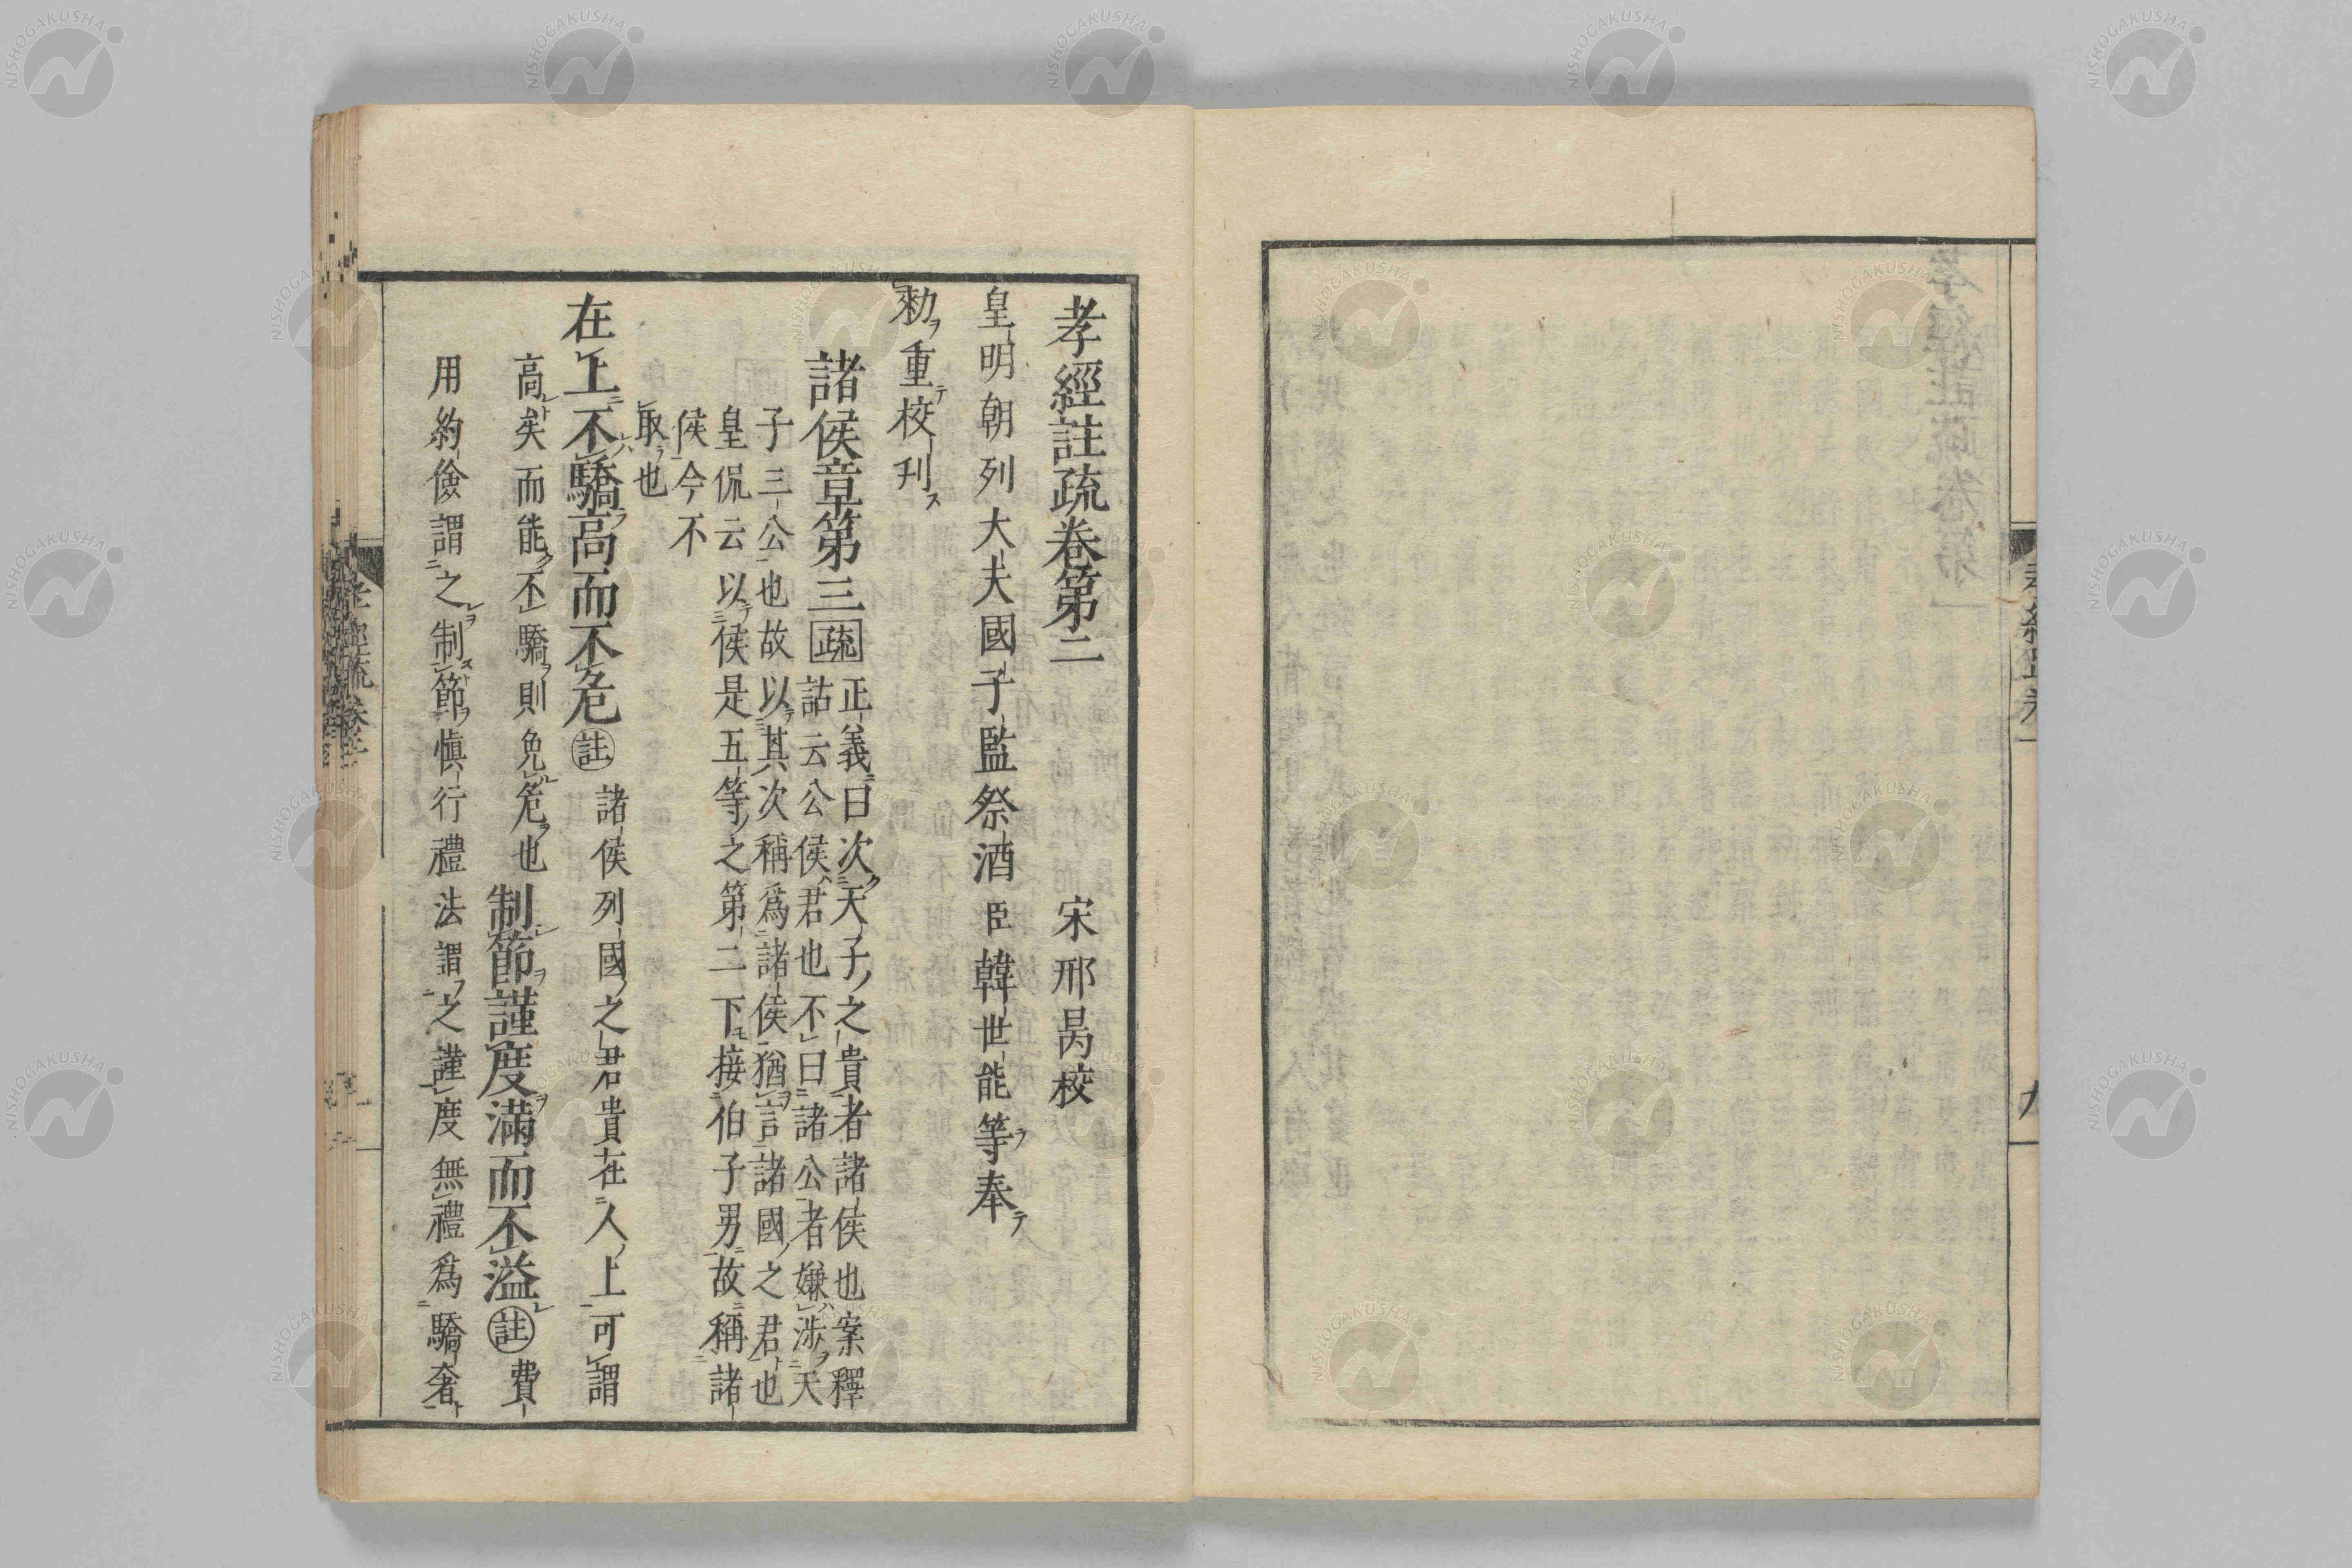 孝經註疏卷第二　宋邢昺校
皇明朝列大夫國子監祭酒臣韓世能等奉
勑重校刋
諸侯章第三疏
正義曰次天子之貴者諸侯也案釋
詁云公侯君也不曰諸公者嫌涉天
子三公也故以其次稱爲諸侯猶言諸國之君也
皇侃云以侯是五等之第二下接伯子男故稱諸
侯今不
取也
在上不驕高而不危註諸侯列國之君貴在人上可謂
高矣而能不驕則免危也制節謹度滿而不溢註費
用約儉謂之制節愼行禮法謂之謹度無禮爲驕奢
孝經疏卷二
NISHOGAKUSHA